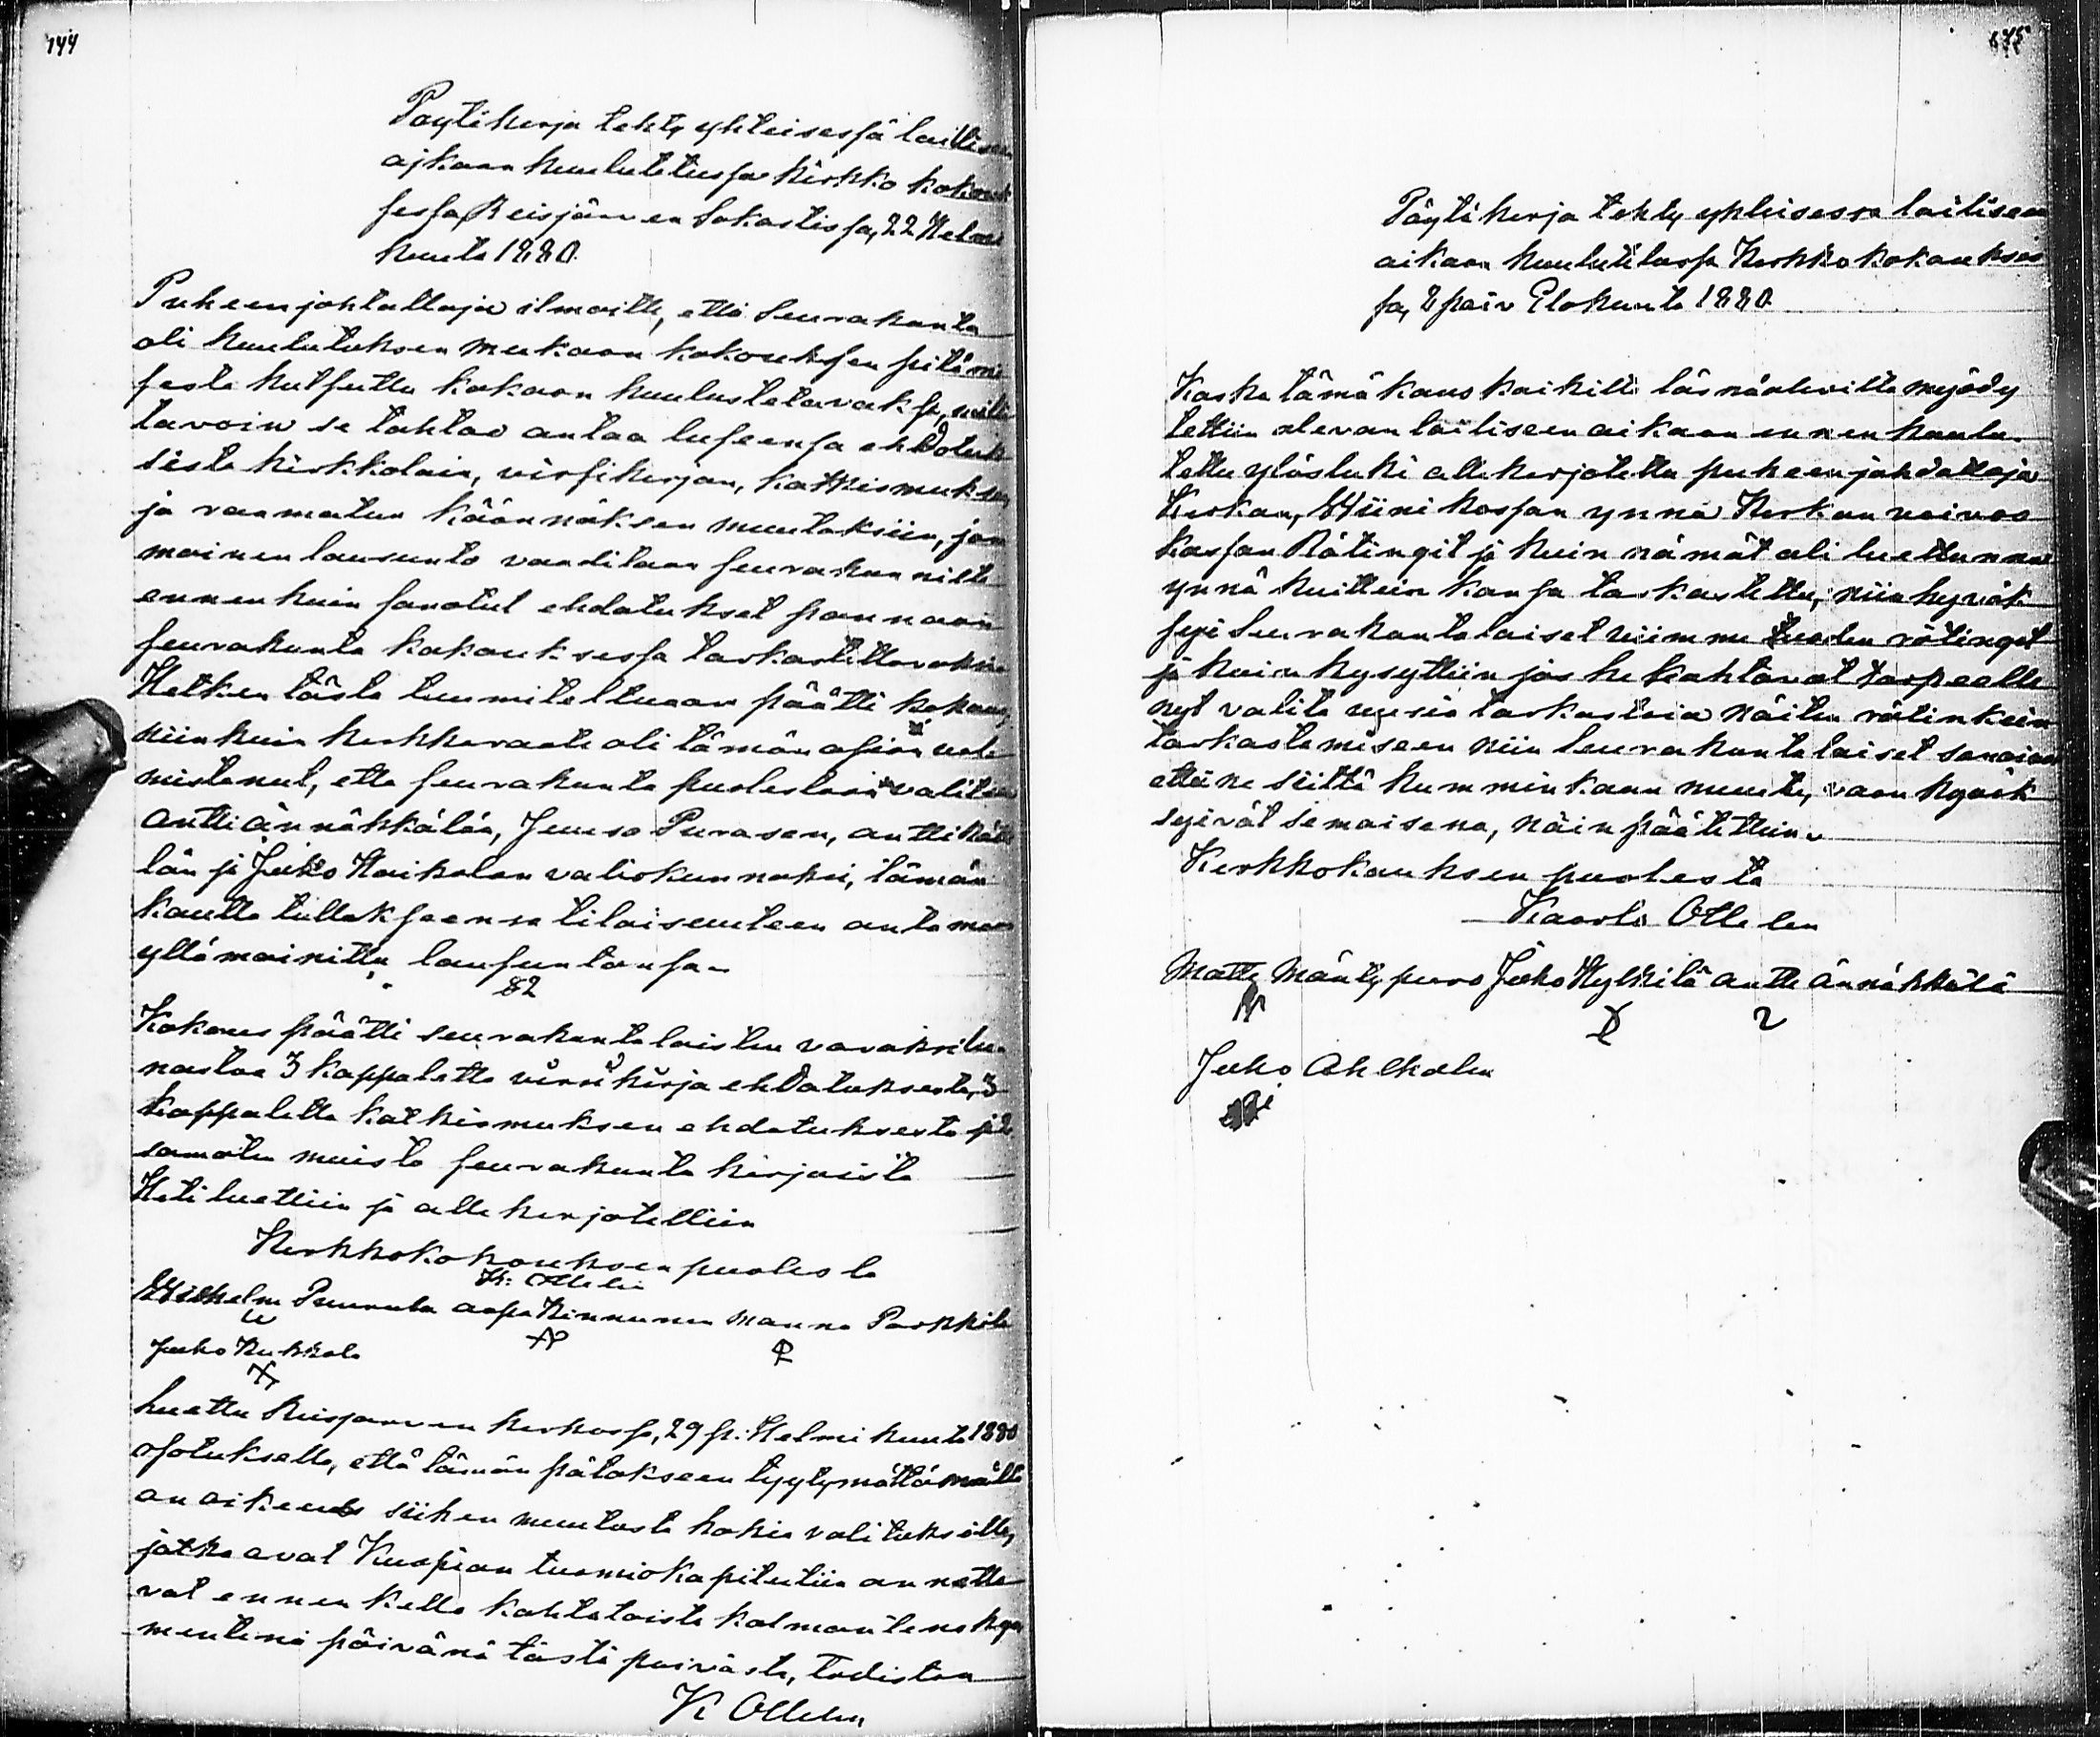 144
Poytäkirja tehty yhteisessä laillisen
ajkaan kuulutetussa kirkko kokouk
sessa, Reisjärven Sakastissa, 22 Helmi
kuuta 1880.
Puheenjohtattaja ilmoitti, että Seurakunta
oli kuulutuksen mukaan kokouksen pitämi
sestä kutsuttu kokoon kuulustetavaksi, mitä
tavoin se tahtoo antaa luseensa ehdotuk
sista kirkkolain, virsikirjan, katkismuksen
ja raamatun käännöksen muutoksiin, jom
moinen lausunto vaaditaan seurakunnilta
ennenkuin sanotut ehdotukset pannaan
seurakunta kokouksessa tarkastettavaksi
Hetken tästä tuumiteltuaan päätti kokous,
niinkuin kirkkoraati oli tämän asian
mistanut, että seurakunta puolestaan valitsee
Antti Ännäkkälän, Juuso Purasen, Antti
län ja Jaako Haikolan valiokunnaksi, tämän
kautta tullaksensa tilaisuuteen antamaan
yllämainittu lausuntonsa.
§2
Kokous päätti seurakuntalaisten varaksi lu-
nastaa 3 kappaletta virsikirja ehdotuksesta, 3
kappaletta katkismuksen ehdotuksesta ja
samoten muista seurakunta kirjoista
Heti luettiin ja allekirjotettiin
Kirkkokokouksen puolesta
K: Ollelin
Wilhelm Puurula aapa Kinnunen Manna Parkkila
Jaako Kukkola
Luettu Reisjärven kirkossa, 29 p: Helmikuuta 1880
osotuksella, että tämän päätökseen tyytymättömällä
on oikeus siihen muutosta hakia valituksilla,
jotka ovat Kuopion tuomiokapituliin annetta
vat ennen kello kahtatoista kolmantenakym
mentenä päivänä tästä päivästä, Todistaa
K Ollelin
145
Pöytäkirja tehty yhteisessa lailiseen
aikaan kuulutetussa Kirkkokokoukses
sa, 8 päiv Elokuuta 1880
Koska tämä kous kaikilta läsnäolevilta myödy
tettiin olevan lailiseen aikaan ennen kuulu-
tettu ylösluki allekirjotettu puheenjohdattaja
Kirkon, Wiini kassan ynnä Kirkon vaivas
kassan Rätingit ja kuin nämät oli luettu
ynnä kuittein kansa tarkastettu, niin hyväk
syi Seurakuntalaiset viimme vuoden rätingit
ja kuin kysyttiin jos he kahtovat tarpeelle
nyt valita uusia tarkastaia näiten rätinkein
tarkastamiseen niin Seurakuntalaiset sanoivat
ettei ne siittä kumminkaan muutu, vaan hyväk
syivät semaisena, näin päätettiin.
Kirkkokouksen puolesta
Kaarlo Ollelin
Matti Mäntypuro Jaako Hylkilä Antti Ännäkkälä
Jaako Ahlholm